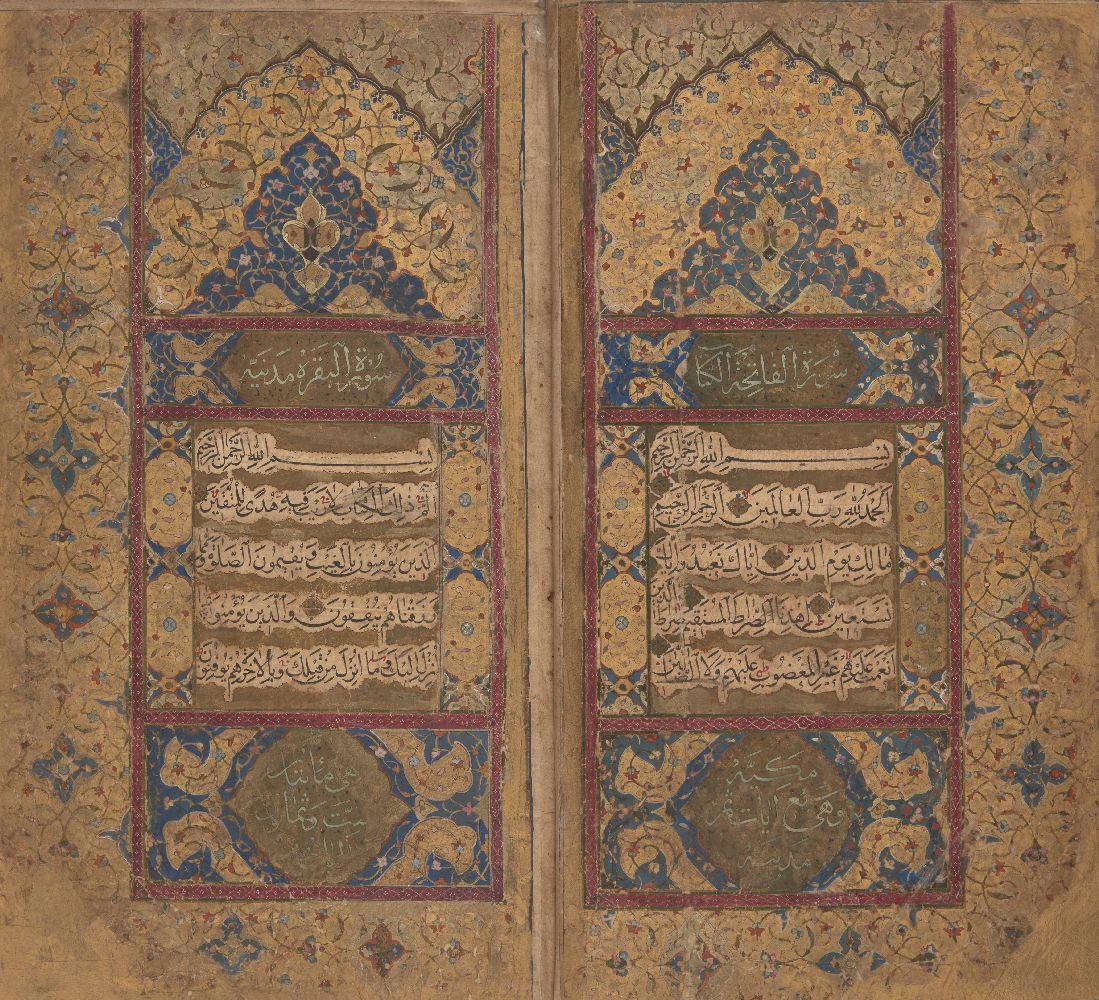 سورة الفاتحة الكتاب
بسم الله الرحمن الرحيم
الحمد لله رب العالمين الرحمن الرحيم
مالك يوم الدين اياك نعبد واياك
نستعين اهدنا الصراط المستقيم صراط الذين
انعمت عليهم غير المغضوب عليهم ولا الضالين
مكية
وهي سبع ايات
مدنية
سورة البقرة مدنية
بسم الله الرحمن الرحيم
الم ذلك الكتاب لا ريب فيه هدى للمتقين
الذين يؤمنون بالغيب ويقيمون الصلوة ومما
رزقناهم ينفقون والذين يؤمنون بما
انزل اليك وما انزل من قبلك وبالاخرة هم يوقنون
وهي مائتان
ست وثمانون